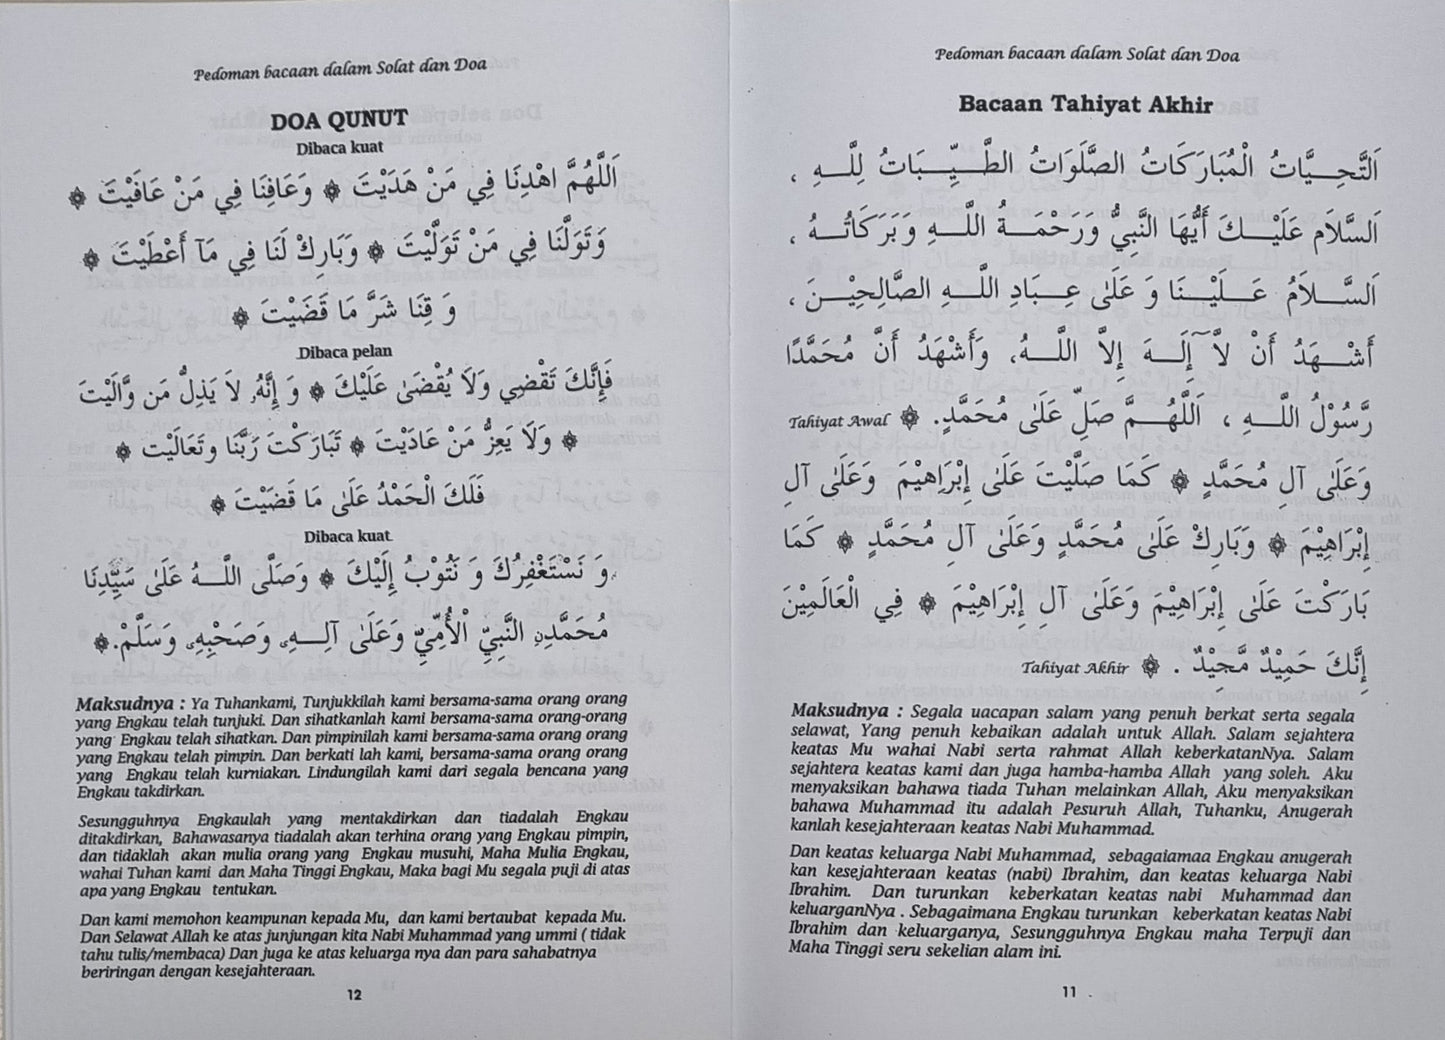 Pedoman bacaan dalam Solat dan Doa
Bacaan Tahiyat Akhir
اَلتَّحِـــيَّاتُ الْمُبَارَكَاتُ الصَّلَوَاتُ الطَّـــيِّـــبَاتُ لِلَّـــهِ ،
اَلسَّلاَم عَلَيْـــكَ أَيُّهَا النَّبِيُّ وَرَحْمَـــةُ اللَّـــهِ وَبَرَكَاتُـــهُ ،
اَلسَّـــلاَمُ عَـــلَيْـــنَا وَ عَلَى عِـــبَادِ اللَّـــهِ الصَّالِحِيْـــنَ ،
أَشْـــهَدُ أَنْ لاَّ إِلَـــهَ إِلاَّ اللَّـــهُ، وَأَشْهَدُ أَنَّ مُحَمَّدًا
رَّسُوْلُ اللَّـــهِ ، اَللَّهُـــمَّ صَلِّ عَلَى مُحَمَّدٍ. ۞ Tahiyat Awal
وَعَلَى آلِ مُحَمَّدٍ ۞ كَمَا صَلَّيْتَ عَلَى إِبْرَاهِيْمَ وَعَلَى آلِ
إِبْرَاهِيْمَ ۞ وَبَارِكْ عَلَى مُحَمَّدٍ وَعَلَى آلِ مُحَمَّدٍ ۞ كَمَا
بَارَكْتَ عَلَى إِبْرَاهِيْمَ وَعَلَى آلِ إِبْرَاهِيْمَ ۞ فِي الْعَالَمِيْنَ
إِنَّكَ حَمِيْدٌ مَّجِيْدٌ . ۞ Tahiyat Akhir
Maksudnya : Segala uacapan salam yang penuh berkat serta segala
selawat, Yang penuh kebaikan adalah untuk Allah. Salam sejahtera
keatas Mu wahai Nabi serta rahmat Allah keberkatanNya. Salam
sejahtera keatas kami dan juga hamba-hamba Allah yang soleh. Aku
menyaksikan bahawa tiada Tuhan melainkan Allah, Aku menyaksikan
bahawa Muhammad itu adalah Pesuruh Allah, Tuhanku, Anugerah
kanlah kesejahteraan keatas Nabi Muhammad.
Dan keatas keluarga Nabi Muhammad, sebagaiamaa Engkau anugerah
kan kesejahteraan keatas (nabi) Ibrahim, dan keatas keluarga Nabi
Ibrahim. Dan turunkan keberkatan keatas nabi Muhammad dan
keluarganNya . Sebagaimana Engkau turunkan keberkatan keatas Nabi
Ibrahim dan keluarganya, Sesungguhnya Engkau maha Terpuji dan
Maha Tinggi seru sekelian alam ini.
11
Pedoman bacaan dalam Solat dan Doa
DOA QUNUT
Dibaca kuat
اَللَّهُمَّ اهْدِنَا فِي مَنْ هَدَيْتَ ۞ وَعَافِنَا فِي مَنْ عَافَيْتَ ۞
وَتَوَلَّنَا فِي مَنْ تَوَلَّيْتَ ۞ وَبَارِكْ لَنَا فِي مَآ أَعْطَيْتَ ۞
وَ قِنَا شَرَّ مَا قَضَيْتَ ۞
Dibaca pelan
فَإِنَّكَ تَقْضِي وَلاَ يُقْضَىٰ عَلَيْكَ ۞ وَ إِنَّهُ لاَ يَذِلُّ مَن وَّالَيْتَ
۞ وَلاَ يَعِزُّ مَنْ عَادَيْتَ ۞ تَبَارَكْتَ رَبَّنَا وتَعَالَيْت ۞
فَلَكَ الْحَمْدُ عَلَى مَا قَضَيْتَ ۞
Dibaca kuat
وَ نَسْتَغْفِرُكَ وَ نَتُوْبُ إِلَيْكَ ۞ وَصَلَّى اللَّـــهُ عَلَى سَيِّدِنَا
مُحَمَّدِنِ النَّبِيِّ الْأُمِّيِّ وَعَلَى آلِـــهِ وَصَحْبِهِ وَسَلَّمْ. ۞
Maksudnya : Ya Tuhankami, Tunjukkilah kami bersama-sama orang orang
yang Engkau telah tunjuki. Dan sihatkanlah kami bersama-sama orang-orang
yang Engkau telah sihatkan. Dan pimpinilah kami bersama-sama orang orang
yang Engkau telah pimpin. Dan berkati lah kami, bersama-sama orang orang
yang Engkau telah kurniakan. Lindungilah kami dari segala bencana yang
Engkau takdirkan.
Sesungguhnya Engkaulah yang mentakdirkan dan tiadalah Engkau
ditakdirkan, Bahawasanya tiadalah akan terhina orang yang Engkau pimpin,
dan tidaklah akan mulia orang yang Engkau musuhi, Maha Mulia Engkau,
wahai Tuhan kami dan Maha Tinggi Engkau, Maka bagi Mu segala puji di atas
apa yang Engkau tentukan.
Dan kami memohon keampunan kepada Mu, dan kami bertaubat kepada Mu.
Dan Selawat Allah ke atas junjungan kita Nabi Muhammad yang ummi ( tidak
tahu tulis/membaca) Dan juga ke atas keluarga nya dan para sahabatnya
beriringan dengan kesejahteraan.
12